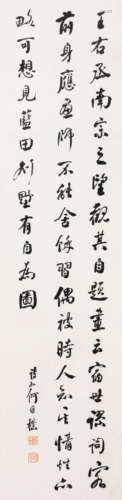 王右丞南宗之望觀其自題畫云宿世謬詞客
前身應畫師不能舍餘習偶被時人知其情性亦
略可想見藍田別墅有自為圖
何維樸